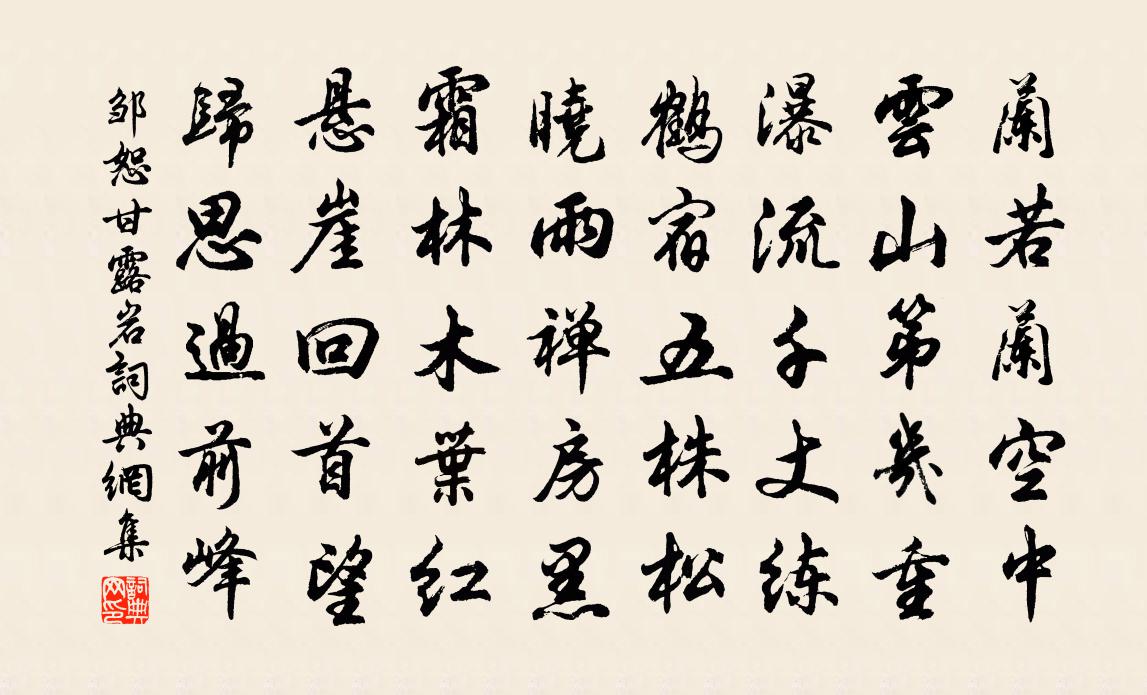 蘭若蘭空中
雲山第幾重
瀑流千丈练
鶴宿五株松
曉雨禅房黑
霜林木葉红
悬崖回首望
歸思過前峰
邹恕甘露岩詞典網集
詞典网印